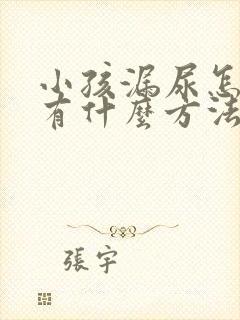 小孩漏尿怎
有什麼方法
張宇